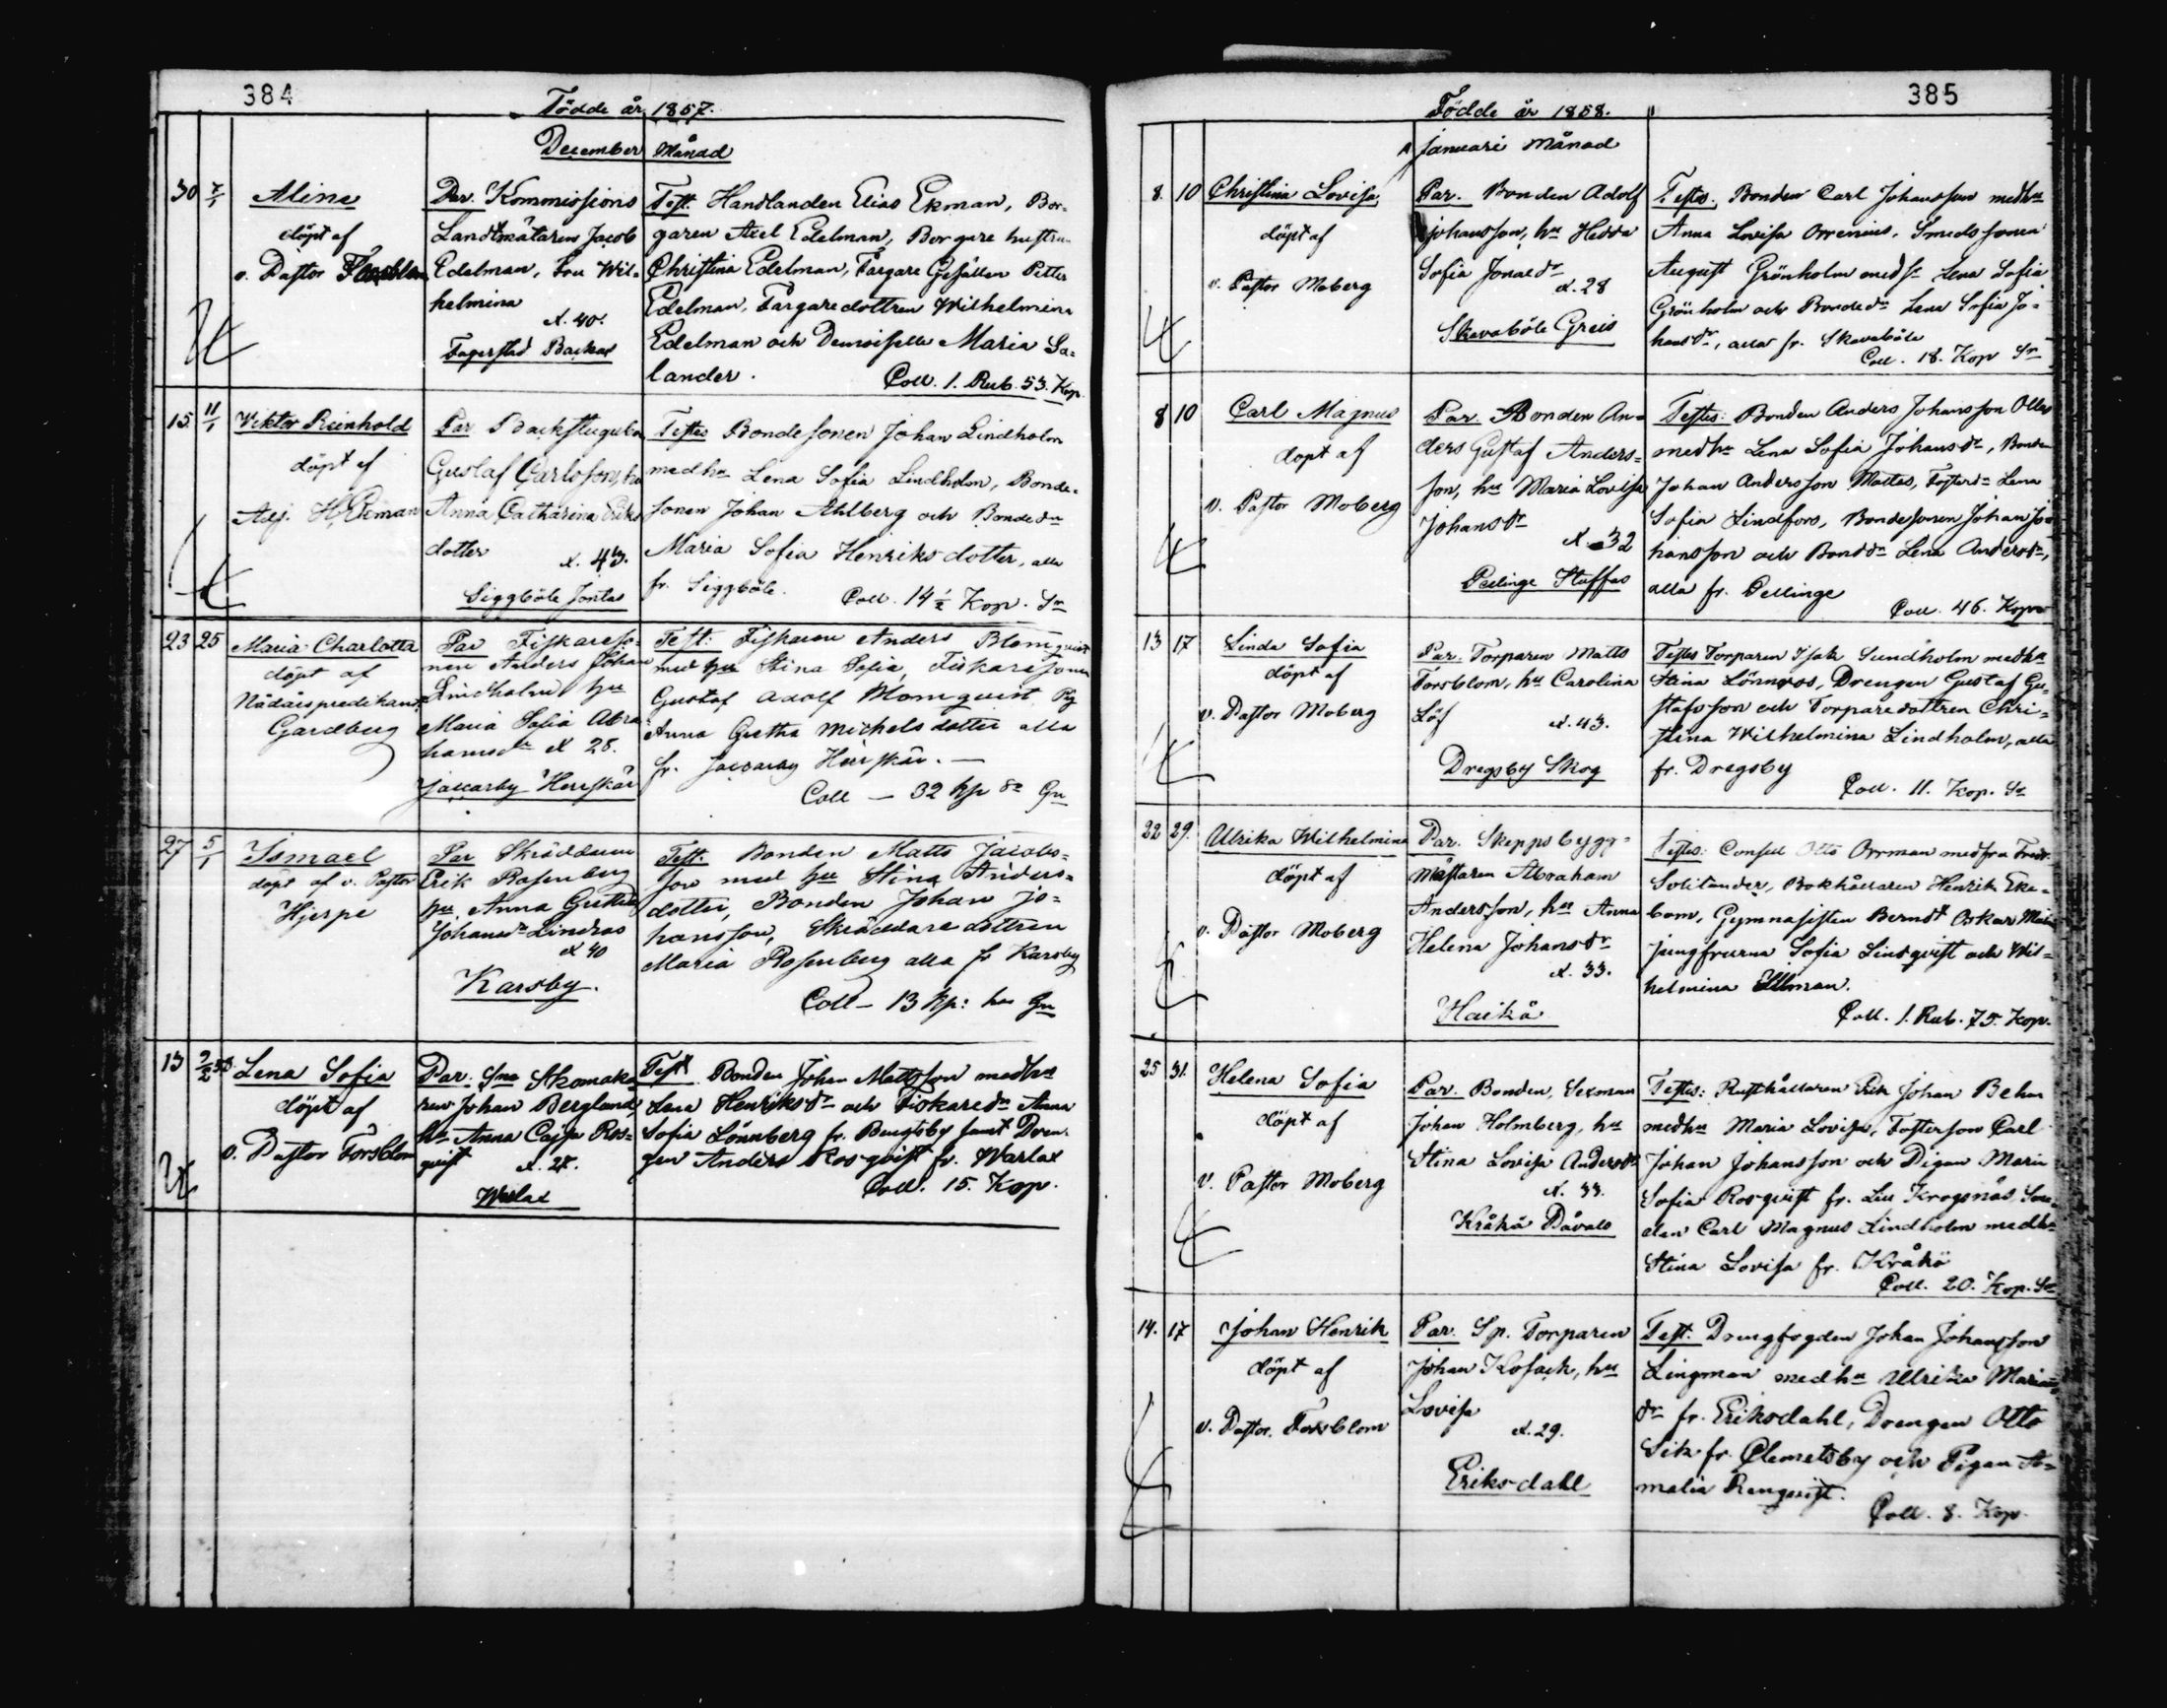 384
Födde år 1857.
December Månad
30 7/1
Aline
döpt af
v. Pastor Forsblom
Par. Kommissions
Landtmätaren Jacob
Edelman, Fru Wil=
helmina
d. 40.
Fagersta Backas
Test. Handlanden Elias Ekman, Bor=
garen Axel Edelman, Borgare hustrun
Christina Edelman, Färgare Gesällen Petter
Edelman, Färgaredottren Wilhelmina
Edelman och Demoiselle Maria Sa=
lander.
Coll. 1. Rub. 53. Kop.
15. 11/1
Viktor Reinhold
döpt af
Adj. H. Ekman
Par Backstugukarl
Gustaf Carlsson, hu
Anna Catharina Eriks
dotter
d. 43.
Siggböle Jontas
Testes Bondesonen Johan Lindholm
med hu Lena Sofia Lindholm, Bonde=
sonen Johan Ahlberg och Bondedr
Maria Sofia Henriksdotter, alla
fr. Siggböle.
Coll. 14 ½ Kop. Sr
23 25
Maria Charlotta
döpt af
Nådårspredikand
Gardberg
Par Fiskareso=
nen Anders Johan
Lindholm hu
Maria Sofia Abra=
hamsdr d 28.
Jackarby Herrskär
Test: Fiskaren Anders Blomqvist
med hu Stina Sofia, Fiskaresonen
Gustaf Adolf Blomqvist Pig
Anna Gretha Michelsdotter alla
fr. Jackarby Herrskär. —
Coll — 32 kp Sr Gu
27 5/1
Ismael
döpt af v. Pastor
Hjerpe
Par Skräddaren
Erik Rosenberg
hu Anna Gretha
Johansdr Lindroos
d 40
Karsby.
Test. Bonden Matts Jacobs=
son med hu Stina Anders=
dotter, Bonden Johan Jo=
hansson, Skräddaredottren
Maria Rosenberg alla fr Karsby
Coll — 13 kp:
13 2/2 58
Lena Sofia
döpt af
v. Pastor Forsblom
Par: Sna Skomaka
ren Johan Berglund,
hu Anna Cajsa Ros=
qvist d. 27.
Warlax
Test Bonden Johan Mattsson med hu
Lena Henriksdr och Fiskaredr Anna
Sofia Lönnberg fr. Bengtsby samt Dren=
gen Anders Rosqvist fr. Warlax
Coll. 15. Kop.
385
Födde år 1858.
Januari Månad
8. 10
Christina Lovisa
döpt af
v. Pastor Moberg
Par. Bonden Adolf
Johansson, hu Hedda
Sofia Jonaedr
d. 28
Skavaböle Greis
Testes. Bonden Carl Johansson med hu
Anna Lovisa Orrenius, Smedssonen
August Grönholm med Sr Lena Sofia
Grönholm och Bondedr Lena Sofia Jo=
hansdr, alla fr. Skavaböle
Coll. 18. Kop Sr
8 10
Carl Magnus
döpt af
v. Pastor Moberg
Par. Bonden An=
ders Gustaf Anders=
son, hu Maria Lovisa
Johansdr
d. 32
Pellinge Staffas
Testes: Bonden Anders Johansson Ollas
med hu Lena Sofia Johansdr, Bonden
Johan Andersson Mattas, Fosterdr Lena
Sofia Lindfors, Bondesonen Johan Jo=
hansson och Bonddr Lena Andersdr,
alla fr. Pellinge
Coll. 46. Kop
13 17
Linda Sofia
döpt af
v. Pastor Moberg
Par. Torparen Matts
Forsblom, hu Carolina
Löf
d. 43.
Dregsby Skog
Testes Torparen Isak Sundholm med hu
Stina Lönnroos, Drengen Gustaf Gu=
stafsson och Torparedottren Chri=
stina Wilhelmina Lindholm, alla
fr. Dregsby
Coll. 11. Kop. Sr
22 29.
Ulrika Wilhelmina
döpt af
v. Pastor Moberg
Par. Skeppsbygg=
mästaren Abraham
Andersson, hu Anna
Helena Johansdr
d. 33.
Haikå
Testes: Consul Otto Orrman med fru Fredr.
Solitander, Bokhållaren Henrik Eke=
bom, Gymnasisten Berndt Oskar
jungfrurna Sofia Lindqvist och Wil=
helmina Ellman.
Coll. 1. Rub. 75. Kop.
25 31.
Helena Sofia
döpt af
v. Pastor Moberg
Par. Bonden, Sexman
Johan Holmberg, hu
Stina Lovisa Andersdr
d. 33.
Kråkö Dåvals
Testes: Rusthållaren Erik Johan Behm
med hu Maria Lovisa, Fosterson Carl
Johan Johansson och Pigan Maria
Sofia Rosqvist fr. Lill Krogsnäs,
Carl Magnus Lindholm med hu
Stina Lovisa fr. Kråkö
Coll. 20. Kop. Sr
14. 17
Johan Henrik
döpt af
v. Pastor. Forsblom
Par. Sp. Torparen
Johan Kosack, hu
Lovisa
d. 29.
Eriksdahl
Test. Drengfogden Johan Johansson
Lingman med hu Ulrika
dr fr. Eriksdahl, Drengen Otto
Sik fr. Clemetsby och Pigan A=
malia Renqvist.
Coll. 8. Kop.